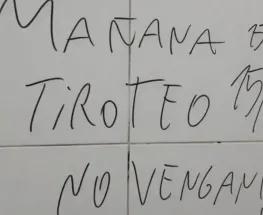 MAÑANA
TIROTEO 15/
NO VENGAN